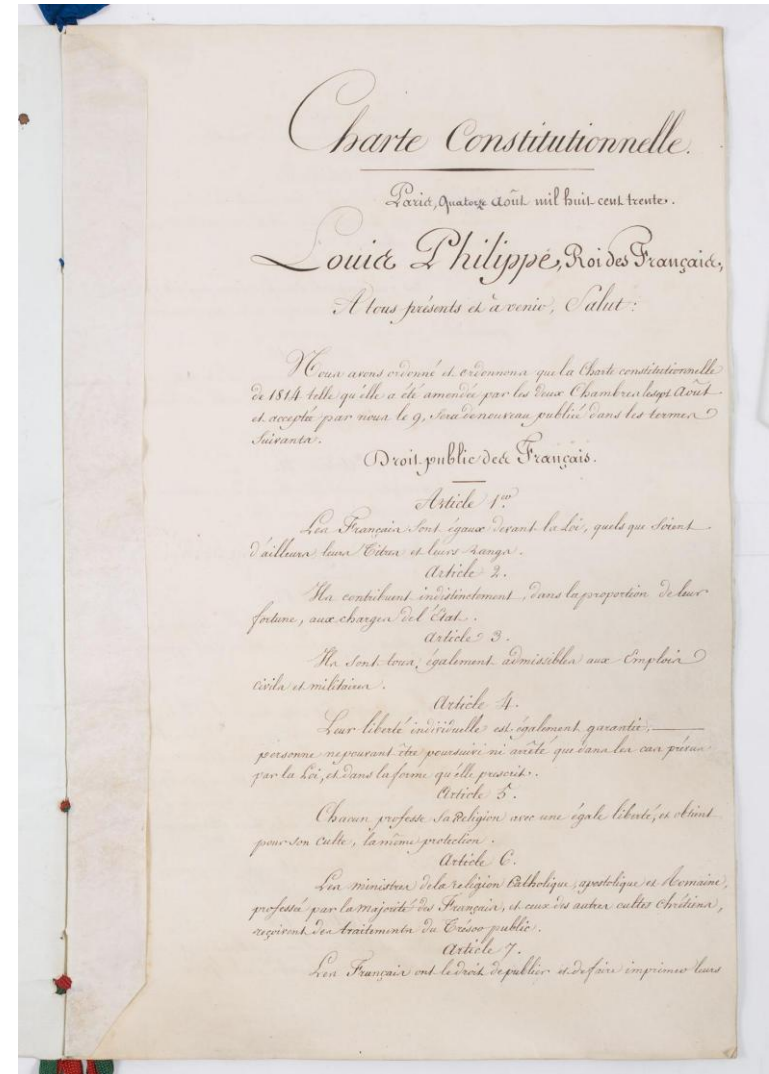 Charte Constitutionnelle.
Paris, Quatorze Août mil huit cent trente.
Louis Philippe, Roi des Français,
A tous présents et à venir, Salut:
Nous avons ordonné et ordonnons que la Charte constitutionnelle
de 1814 telle qu'elle a été amendée par les deux Chambres le sept Août
et acceptée par nous le 9, sera de nouveau publiée dans les termes
Suivants.
Droit public des Français.
Article 1er.
Les Français sont égaux devant la Loi, quels que soient
d'ailleurs leurs Titres et leurs rangs.
Article 2.
Ils contribuent indistinctement, dans la proportion de leur
fortune, aux charges de l'État.
Article 3.
Ils sont tous, également admissibles aux Emplois
civils et militaires.
Article 4.
Leur liberté individuelle est également garantie,
personne ne pouvant être poursuivi ni arrêté que dans les cas prévus
par la Loi, et dans la forme qu'elle prescrit.
Article 5.
Chacun professe sa Religion avec une égale liberté, et obtient
pour son Culte, la même protection.
Article 6.
Les ministres de la religion Catholique, apostolique et Romaine,
professée par la majorité des Français, et ceux des autres cultes chrétiens,
reçoivent des traitements du Trésor public.
Article 7.
Les Français ont le droit de publier et de faire imprimer leurs